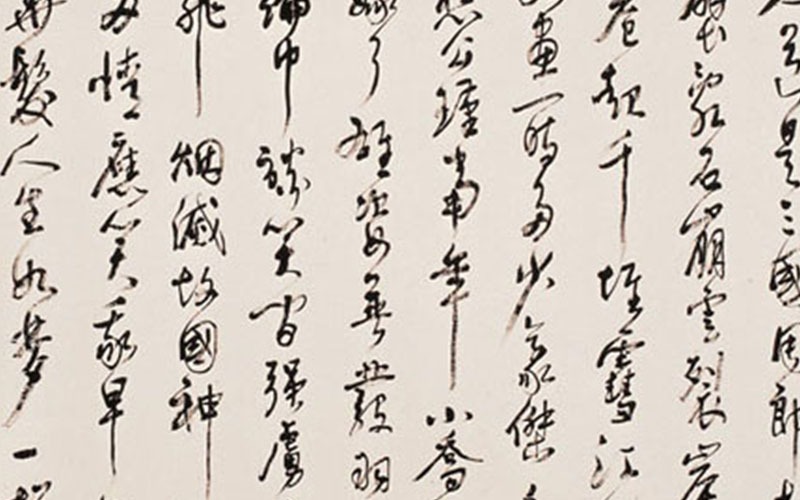 道是三國周郎
亂石崩雲裂岸
卷起千堆雪江
畫一時多少豪傑
公瑾當年小喬
嫁了雄姿英發羽
綸巾談笑間強虜
飛烟滅故國神
多情應笑我早
髮人生如夢一